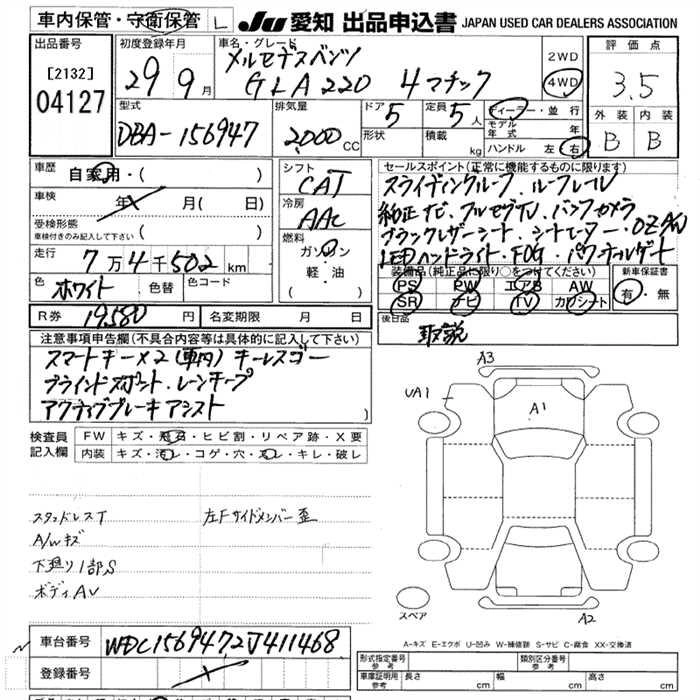 車内保管・守衛保管 L JU 愛知 出品申込書 JAPAN USED CAR DEALERS ASSOCIATION
出品番号 初度登録年月 車名・グレード
[2132] 29 9月 メルセデスベンツ 2WD 評価点
04127 GLA220 4マチック 4WD 3.5
型式 排気量 ドア 5 定員 5人 ディーラー・並行 外装 内装
DBA-156947 2,000CC 形状 積載 kg モデル年式 年 B B
ハンドル 左 右
車歴 自家用・( ) シフト CAT セールスポイント(正常に機能するものに限ります)
車検 年 月(日) 冷房 AAC スライディングルーフ、ルーフレール
受検形態 純正ナビ、フルセグTV、バックカメラ
車検付きのみ記入して下さい ( ) 燃料 ブラックレザーシート、シートヒーター・OZAW
走行 7万4千502km ガソリン LEDヘッドライト・FOG・パワーゲート
軽・油 装備品(純正品に限り○をつけてください) 新車保証書
色 ホワイト 色替 色コード ( ) PS PW エアB AW 有・無
SR ナビ TV カワシート
R券 19,580円 名変期限 月 日 後日品
取説
注意事項申告欄(不具合内容等は具体的に記入して下さい)
スマートキー×2(車内)キーレスゴー
ブラインドスポット・レーンキープ
アクティブブレーキアシスト )
検査員 FW キズ・飛石・ヒビ割・リペア跡・X要
記入欄 内装 キズ・汚レ・コゲ・穴・スレ・キレ・破レ
A3
UA1
A1
スタッドレスT 左Fサイドメンバー歪
A/Wキズ
下廻り1部S
ボディAV
スペア
A2
車台番号 WDC1569472J411468
A-キズ E-エクボ U-凹み W-補修跡 S-サビ C-腐食 XX-交換済
登録番号
形式指定番号 参考 類別区分番号 参考
車庫証明用 参考 長さ cm 幅 cm 高さ cm